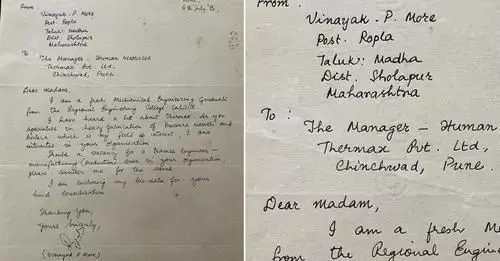 4th July
From
Vinayak. P. More
Post. Ropla
Taluk: Madha
Dist. Sholapur
Maharashtra
To :
The Manager - Human resources
Thermax Pvt. Ltd,
Chinchwad, Pune.
Dear madam,
I am a fresh Mechanical Engineering Graduate
from the Regional Engineering College Calicut.
I have heard a lot about Thermax. As you
specialise in heavy fabrication of Pressure vessels and
boilers which is my field of interest, I am
interested in your organisation
Should a vacancy for a trainee engineer -
manufacturing (Production) arise in your organisation
please consider me for the same
I am enclosing my bio-data for your
kind consideration
Thanking You,
Yours sincerely,
(Vinayak P More)
From :
Vinayak . P. More
Post. Ropla
Taluk: Madha
Dist. Sholapur
Maharashtra
To :
The Manager - Human
Thermax Pvt. Ltd,
Chinchwad, Pune.
Dear madam,
I am a fresh Me
from the Regional Engine